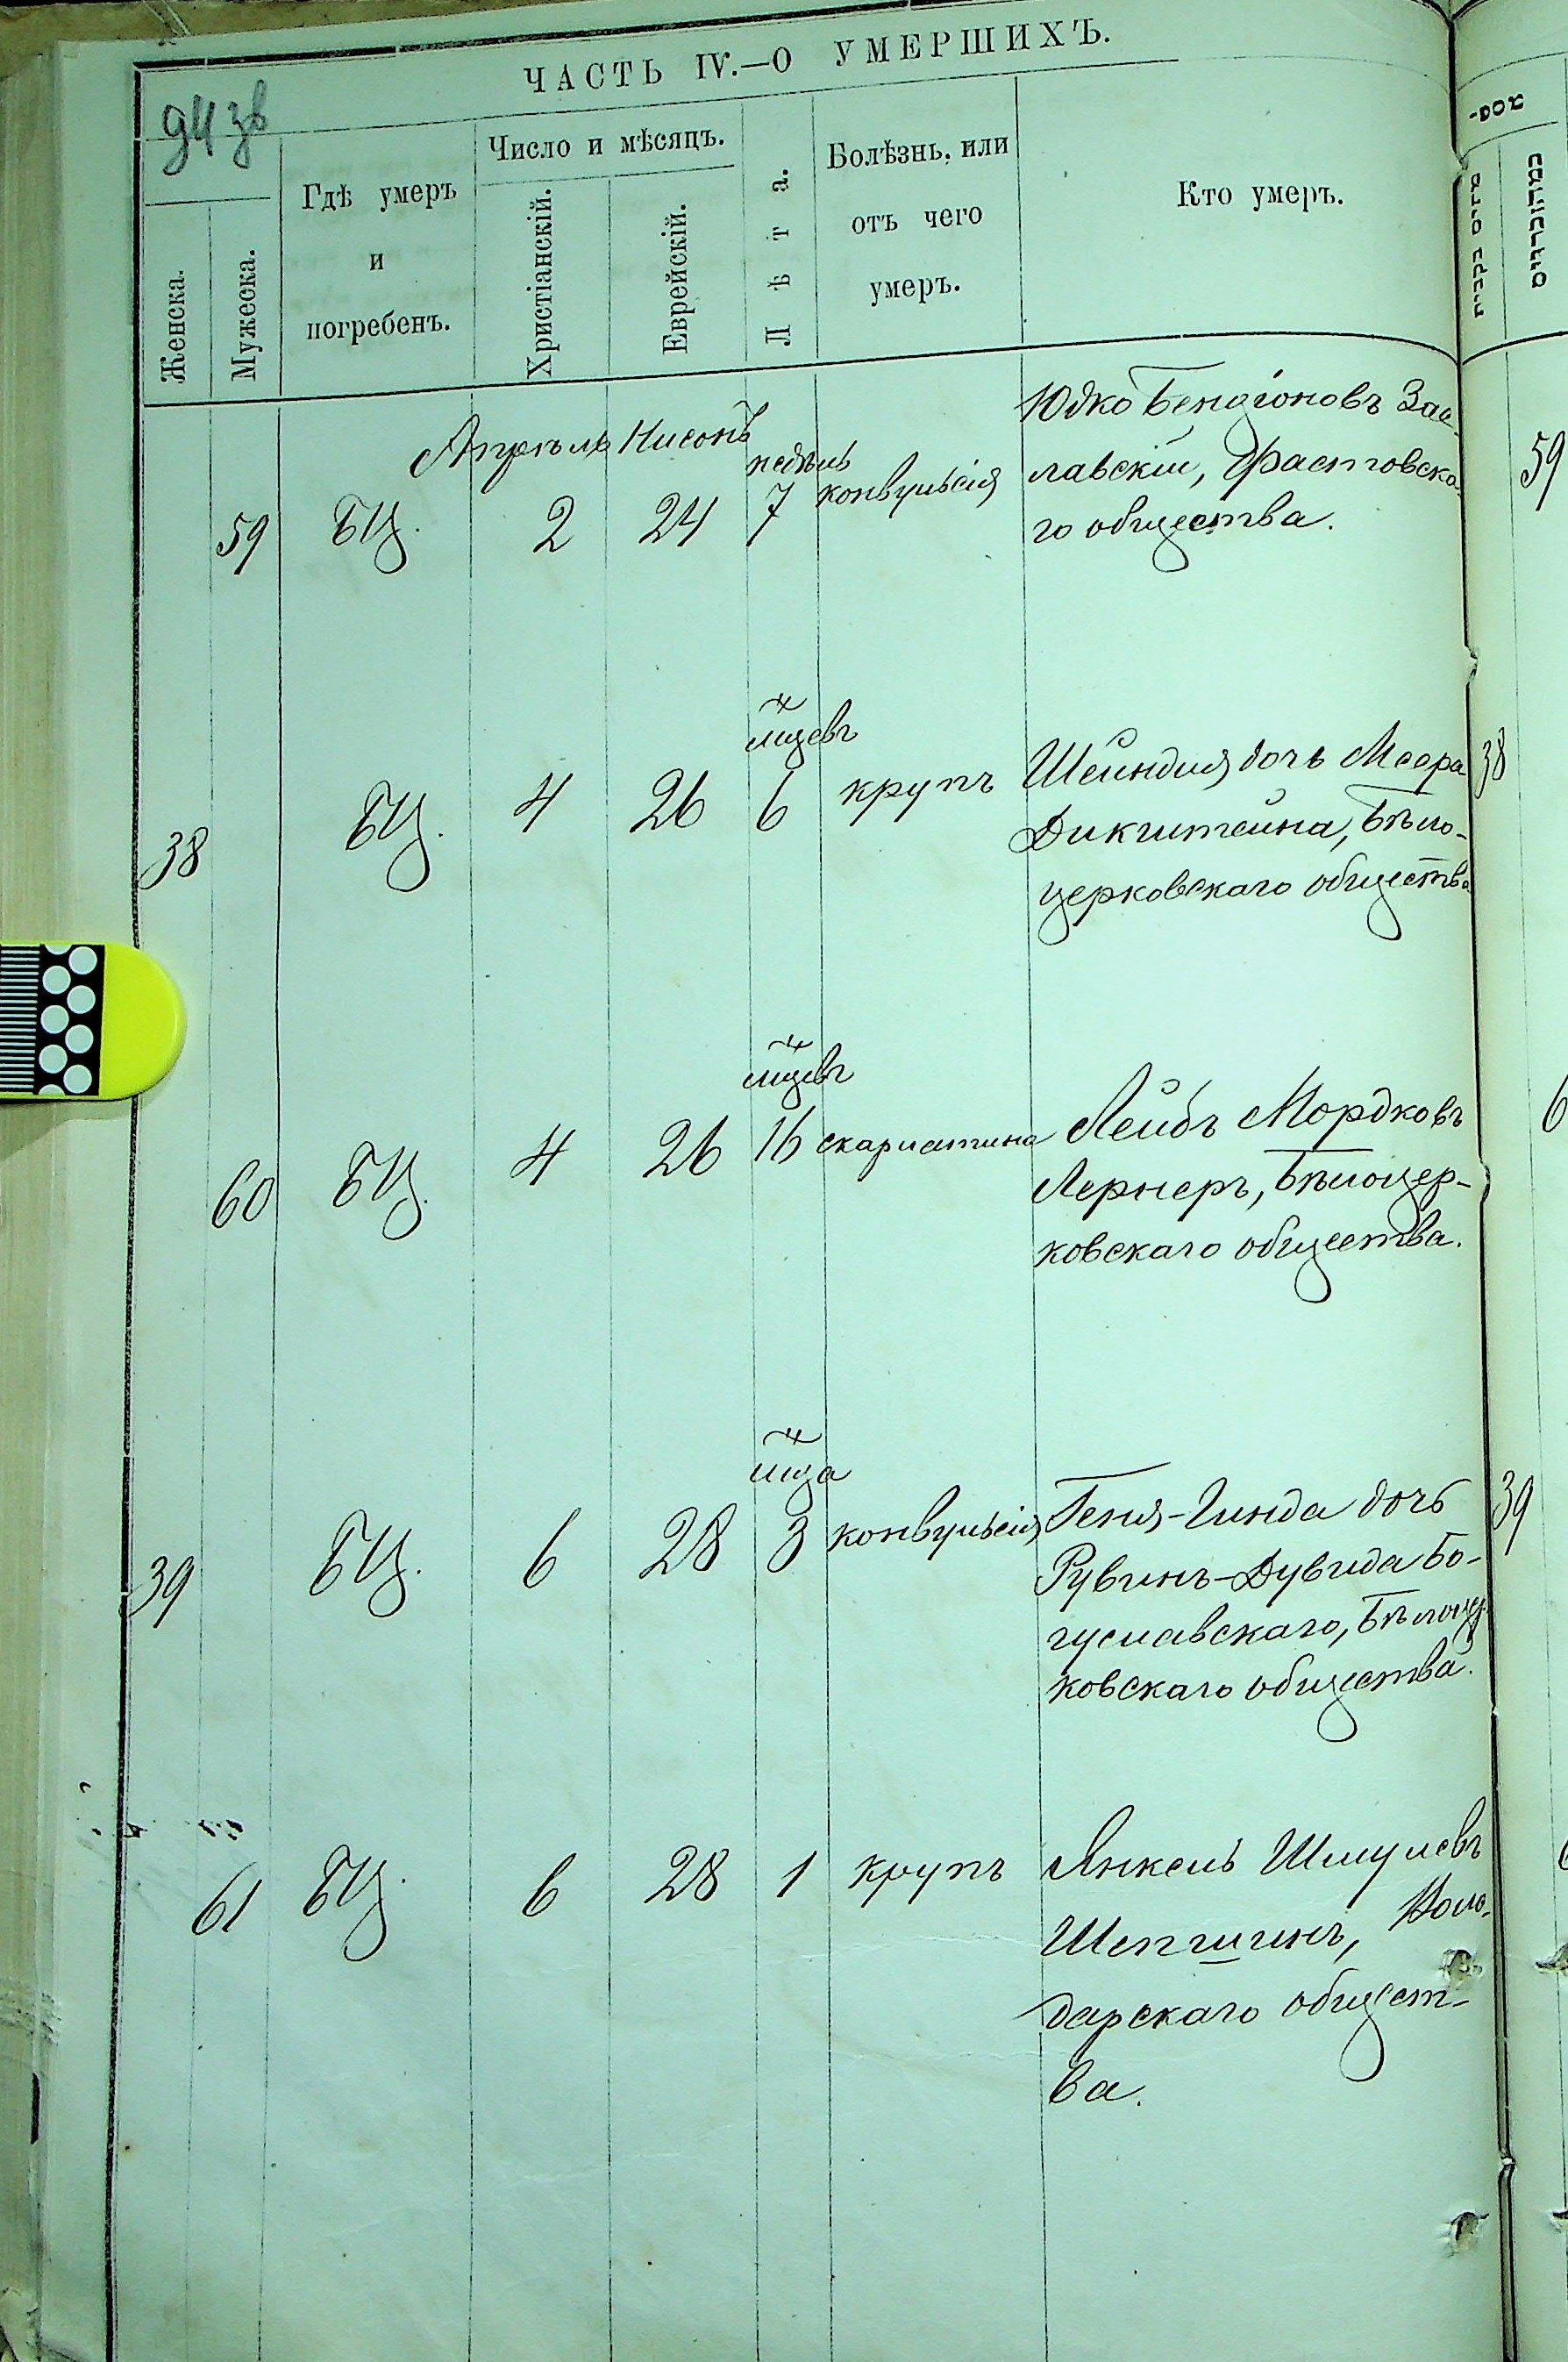 ЧАСТЬ IV.—О УМЕРШИХЪ.
94 зв
Женска.
Мужеска.
Гдѣ умеръ
и
погребенъ.
Число и мѣсяцъ.
Христіанскій.
Еврейскій.
Лѣта.
Болѣзнь, или
отъ чего
умеръ.
Кто умеръ.
Апрель Нисонъ
недѣль
59 БЦ. 2 24 7 конвульсія
Юдко Бенціоновъ Зас-
лавскій, Фастовска-
го общества.
59
мцевъ
38 БЦ. 4 26 6 крупъ
Шейндля дочь Меера
Дикштейна, Бѣло-
церковскаго общества
38
мцевъ
60 БЦ. 4 26 16 скарлатина
Лейбъ Мордковъ
Лернеръ, Бѣлоцер-
ковскаго общества.
6
мца
39 БЦ. 6 28 3 конвульсія
Геня-Гинда дочь
Рувинъ-Дувида Бо-
гуславскаго, Бѣлоцер
ковскаго общества.
39
61 БЦ. 6 28 1 крупъ
Янкель Шмулевъ
Шепшинъ, Воло-
дарскаго общест-
ва.